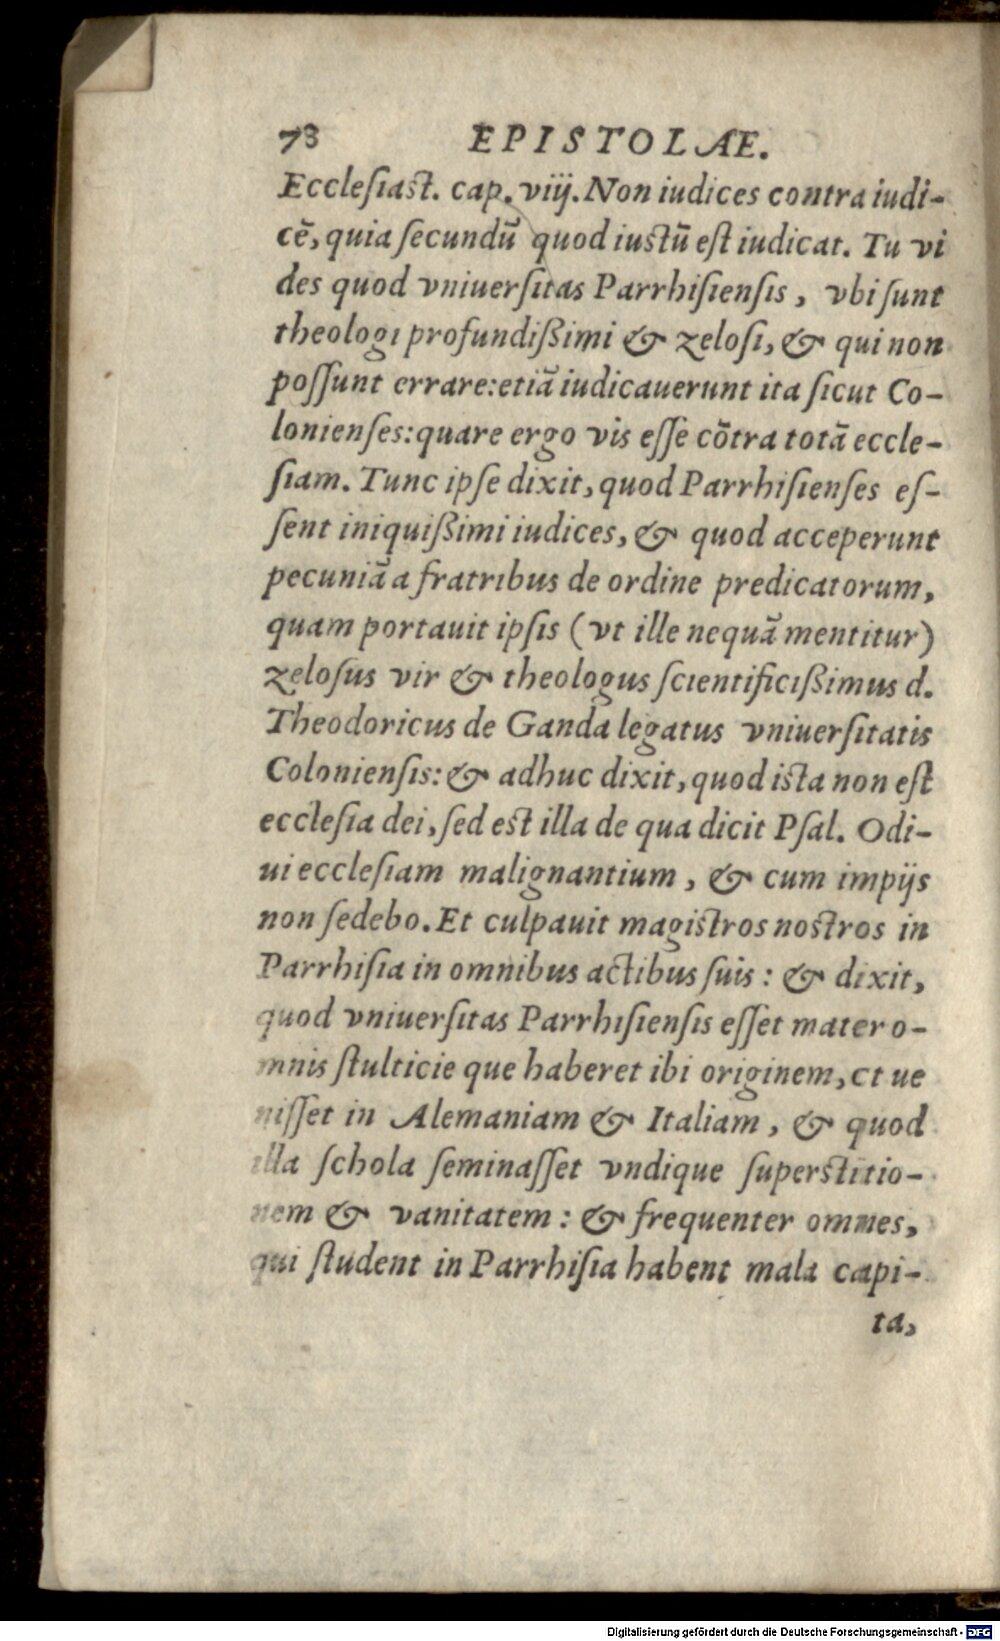 73 EPISTOLAE.
Ecclesiast. cap. viij. Non iudices contra iudi-
cē, quia secundū quod iustū est iudicat. Tu vi
des quod vniuersitas Parrhisiensis, vbi sunt
theologi profundißimi & zelosi, & qui non
possunt errare: etiā iudicauerunt ita sicut Co-
lonienses: quare ergo vis esse cōtra totā eccle-
siam. Tunc ipse dixit, quod Parrhisienses es-
sent iniquißimi iudices, & quod acceperunt
pecuniā a fratribus de ordine predicatorum,
quam portauit ipsis (vt ille nequā mentitur)
zelosus vir & theologus scientificißimus d.
Theodoricus de Ganda legatus vniuersitatis
Coloniensis: & adhuc dixit, quod ista non est
ecclesia dei, sed est illa de qua dicit Psal. Odi-
ui ecclesiam malignantium, & cum impijs
non sedebo. Et culpauit magistros nostros in
Parrhisia in omnibus actibus suis: & dixit,
quod vniuersitas Parrhisiensis esset mater o-
mnis stulticie que haberet ibi originem, et ue
nisset in Alemaniam & Italiam, & quod
illa schola seminasset vndique superstitio-
nem & vanitatem: & frequenter omnes,
qui student in Parrhisia habent mala capi-
ta,
Digitalisierung gefördert durch die Deutsche Forschungsgemeinschaft - DFG